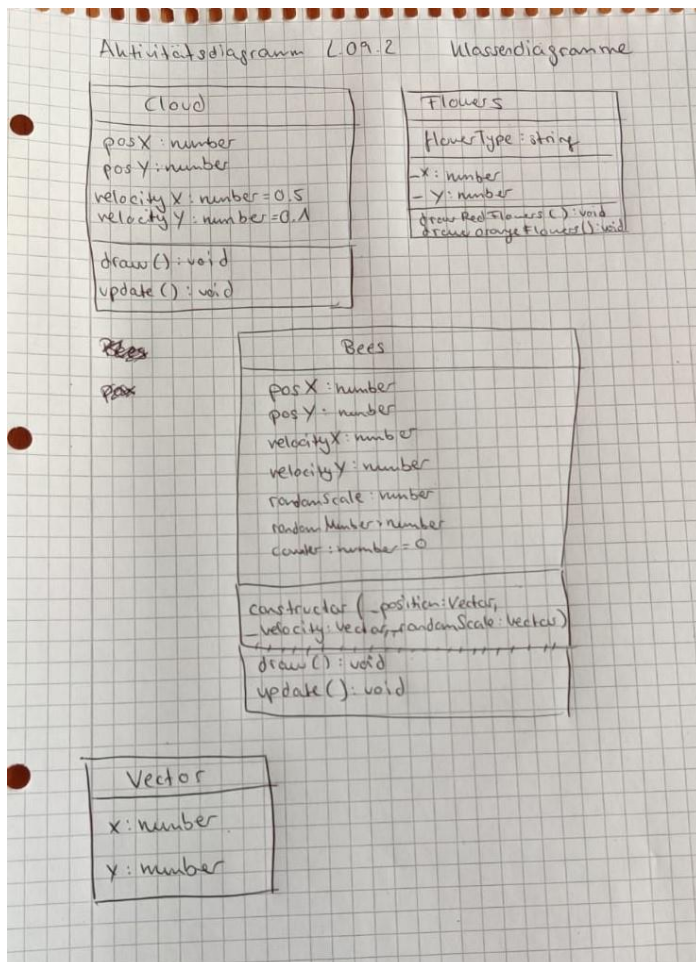 Aktivitätsdiagramm L09.2 Klassendiagramme
Cloud
posX : number
posY : number
velocityX : number = 0.5
velocityY : number = 0.1
draw() : void
update() : void
Flowers
flowerType : string
-x : number
- Y : number
drawRedFlowers() : void
draw orangeFlowers() : void
Bees
pox
Bees
posX : number
posY : number
velocityX : number
velocityY : number
randomScale : number
randomNumber : number
counter : number = 0
constructor (_position : Vector,
_velocity : Vector, _randomScale : Vector)
draw() : void
update() : void
Vector
x : number
y : number